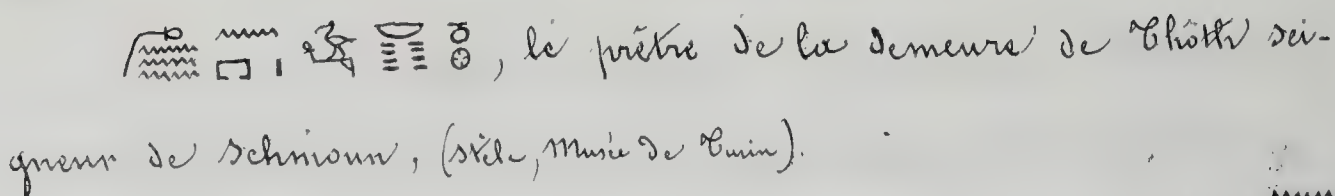 , le prêtre de la demeure de Thôth sei-
gneur de Schmoun, (stèle, Musée de Turin).